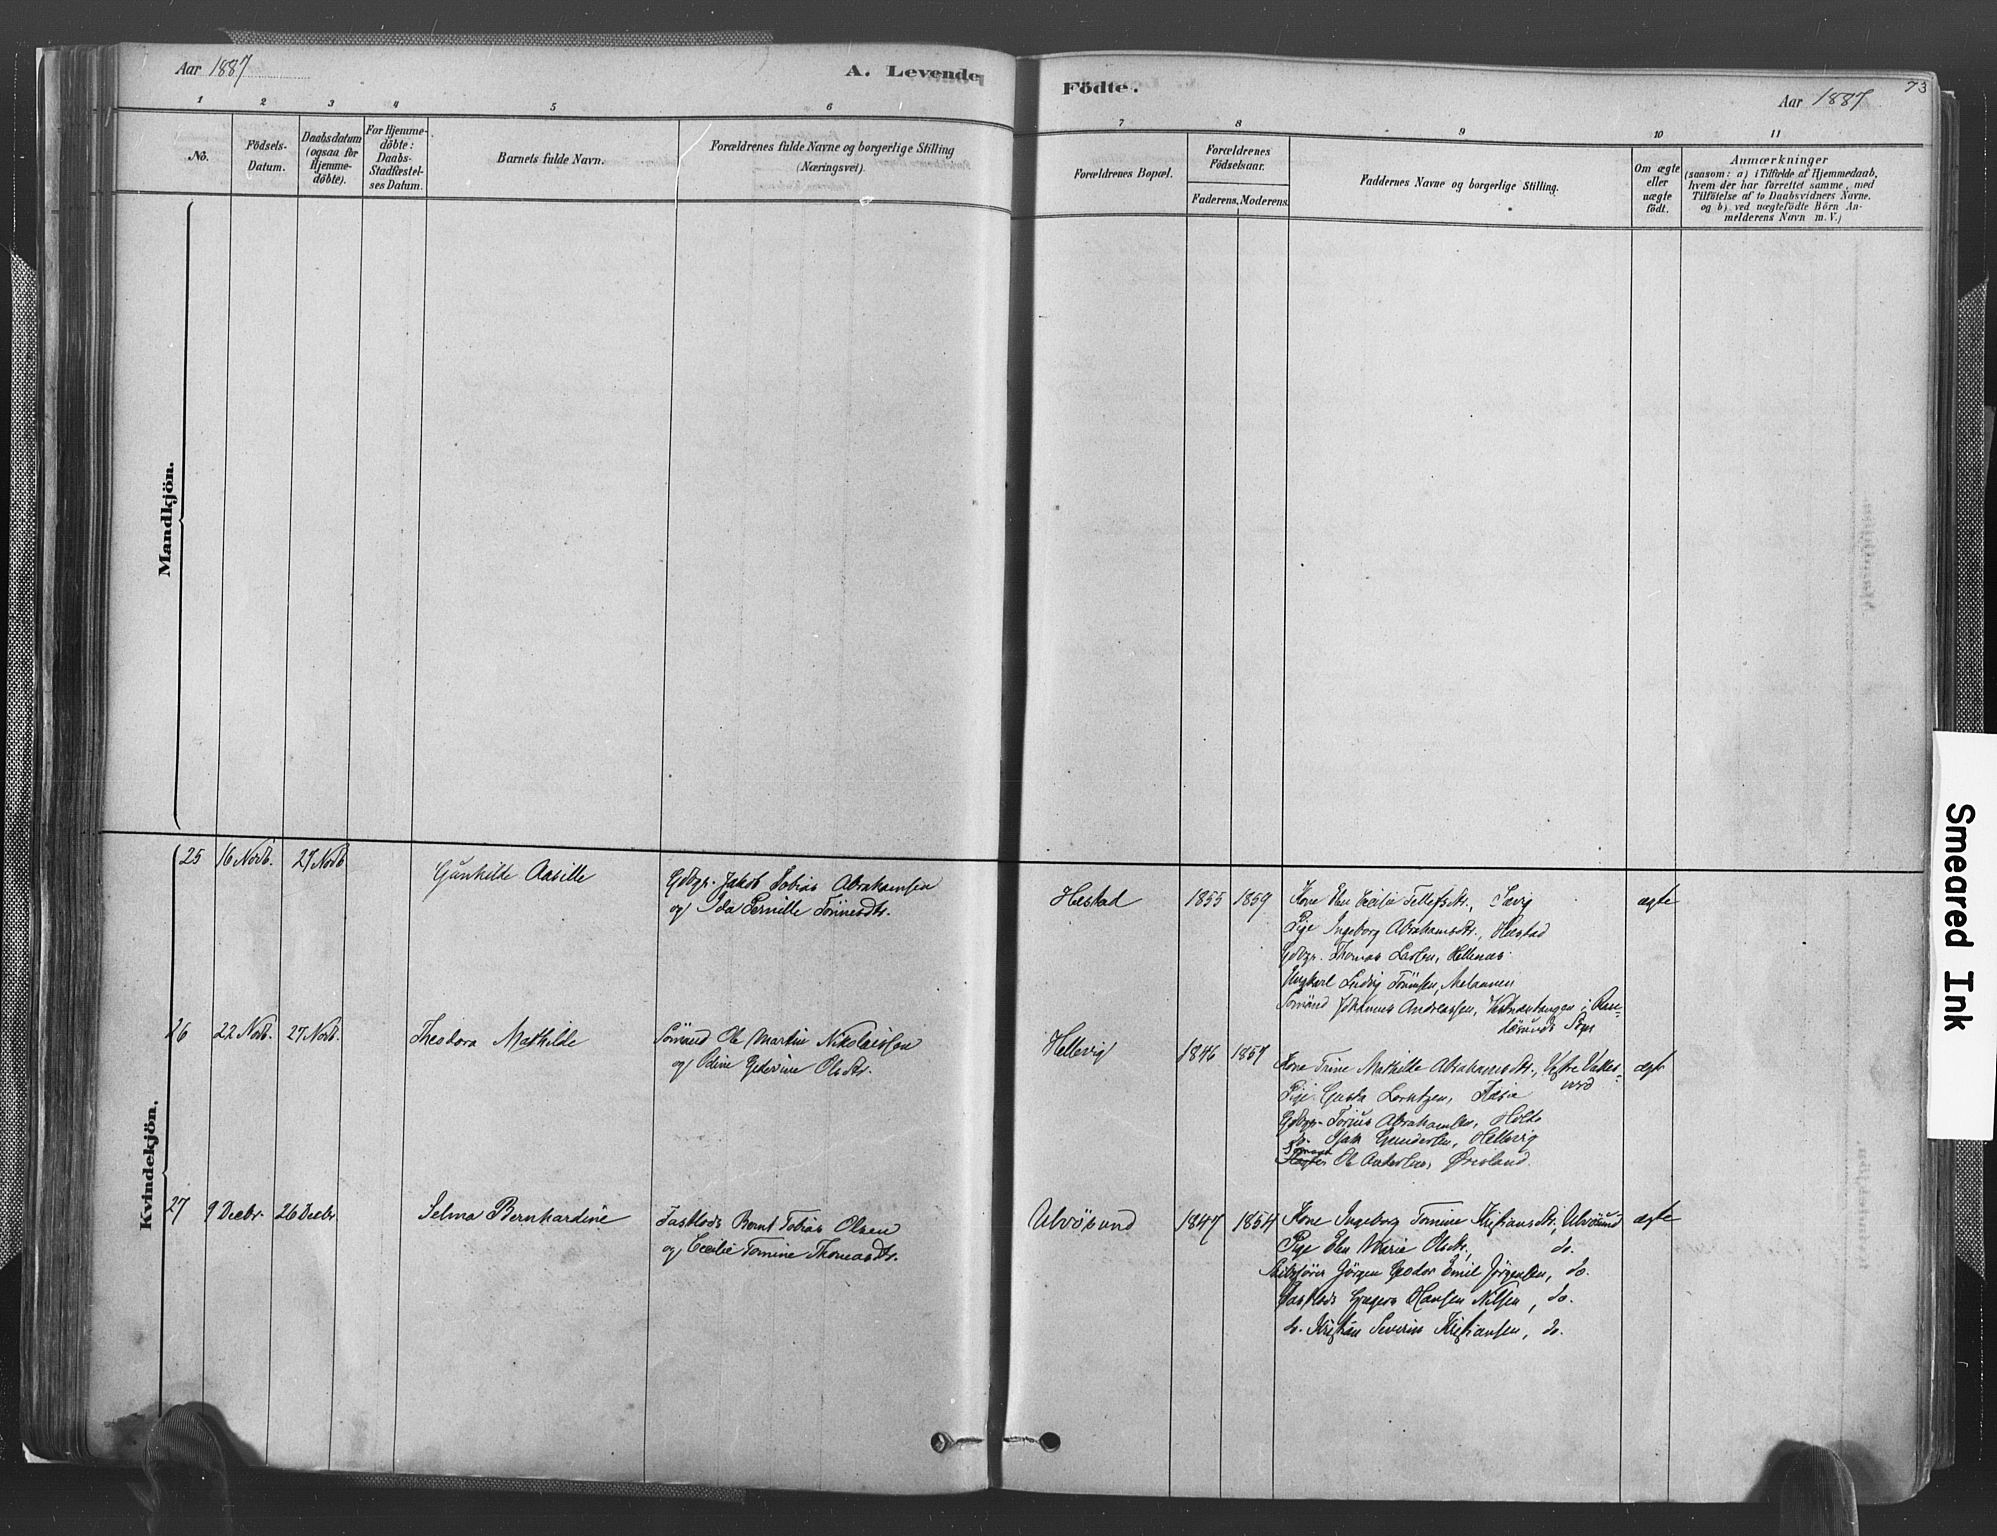 Aar 1887
A. Levende
Födte.
73
Aar 1887
1 2 3 4 5 6
7 8 9 10 11
No.
Födsels-
Datum.
Daabsdatum
(ogsaa for
Hjemme-
döbte).
For Hjemme-
döbte:
Daabs-
Stadfæstel-
ses Datum.
Barnets fulde Navn.
Forældrenes fulde Navne og borgerlige Stilling
(Næringsvei)
Forældrenes Bopæl.
Forældrenes
Födselsaar.
Faderens. Moderens.
Faddernes Navne og borgerlige Stilling.
Om ægte
eller
uægte
födt.
Anmærkninger
(saasom: a) i Tilfælde af Hjemmedaab,
hvem der har forrettet samme, med
Tilföielse af to Daabsvidners Navne.
og b) ved uægtefödte Börn An-
melderens Navn m. V.)
Mandkjön.
Kvindekjön.
25 16 Novb. 27 Novb Gunhilde Aasille
Gdbgr. Jakob Tobias Abrahamsen
og Ida Pernille Tönnesdtr.
Hæstad 1855 1859
Kone Elen Cecilie Tellefsdtr.,
Pige Ingeborg Abrahamsdtr., Hæstad
Gdbgr. Thomas Larsen,
Ungkarl Ludvig Tönnesen,
Sömand Johannes Andreassen,
Sogn
ægte
26 22 Novb. 27 Novb. Theodora Mathilde
Sömand Ole Martin Nikolaissen
og Odine Olsdtr.
Hellevig 1846 1857
Kone Trine Mathilde Abrahamsdtr., Vestre
Pige Gusta Lorntzen,
Gdbgr. Abrahamsen, Holte
do. Gundersen, Hellevig
Sömand Ole Andersen,
ægte
27 9 Decbr. 26 Decbr Selma Bernhardine
Fastlods Bernt Tobias Olsen
og Cecilie Tomine Thomasdtr.
Ulvösund 1847 1854
Kone Ingeborg Tomine Kristiansdtr., Ulvösund
Pige Elen Marie Olsdtr., do.
Skibsförer Jörgen Emil Jörgensen, do.
Fastlods Hansen Nilsen, do.
do. Kristian Severin Kristiansen, do.
ægte
Smeared Ink